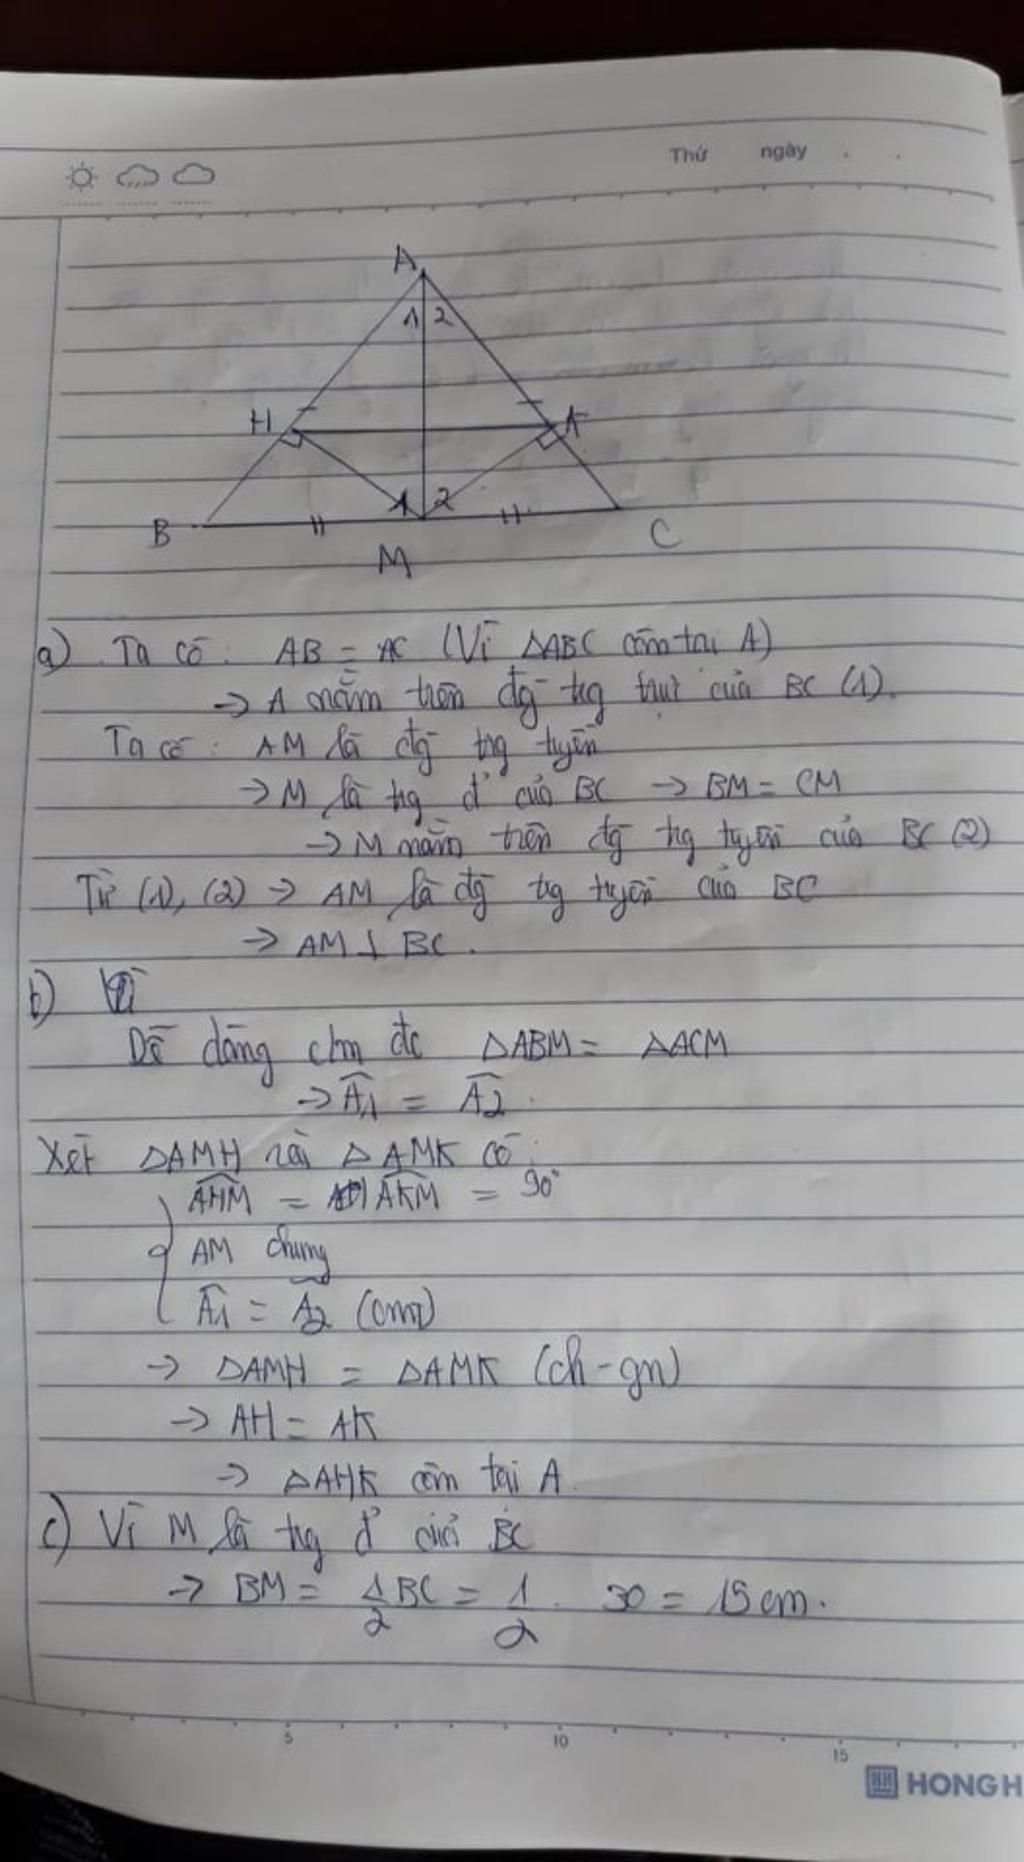 Thứ ngày
A
1 2
H K
1 2
B M C
a) Ta có: AB = AC (Vì ΔABC cân tại A)
→ A nằm trên đg trg trực của BC (1).
Ta có: AM là đg trg tuyến
→ M là trg đ' của BC → BM = CM
→ M nằm trên đg trg tuyến của BC (2)
Từ (1), (2) → AM là đg trg tuyến của BC
→ AM ⊥ BC.
b)
Dễ dàng c/m đc ΔABM = ΔACM
→ Â1 = Â2.
Xét ΔAMH và ΔAMK có:
AHM = AKM = 90°
AM chung
Â1 = Â2 (cmt)
→ ΔAMH = ΔAMK (ch-gn)
→ AH = AK
→ ΔAHK cân tại A.
c) Vì M là trg đ' của BC
→ BM = 1/2 BC = 1/2 . 30 = 15cm.
5 10 15
HONG H